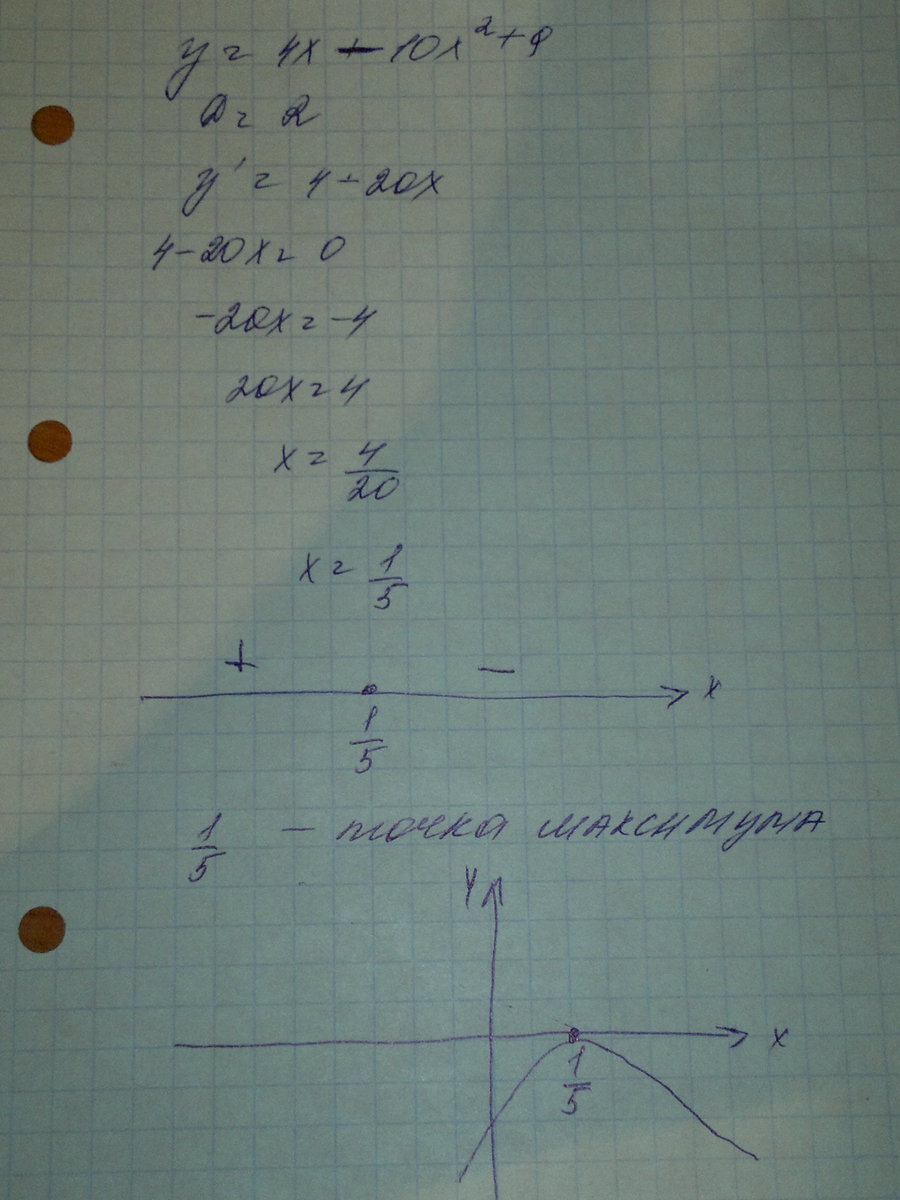 y = 4x - 10x² + a
a = 2
y' = 4 - 20x
4 - 20x = 0
-20x = -4
20x = 4
x = 4/20
x = 1/5
+ -
x
1/5
1/5 - точка максимума
y
x
1/5